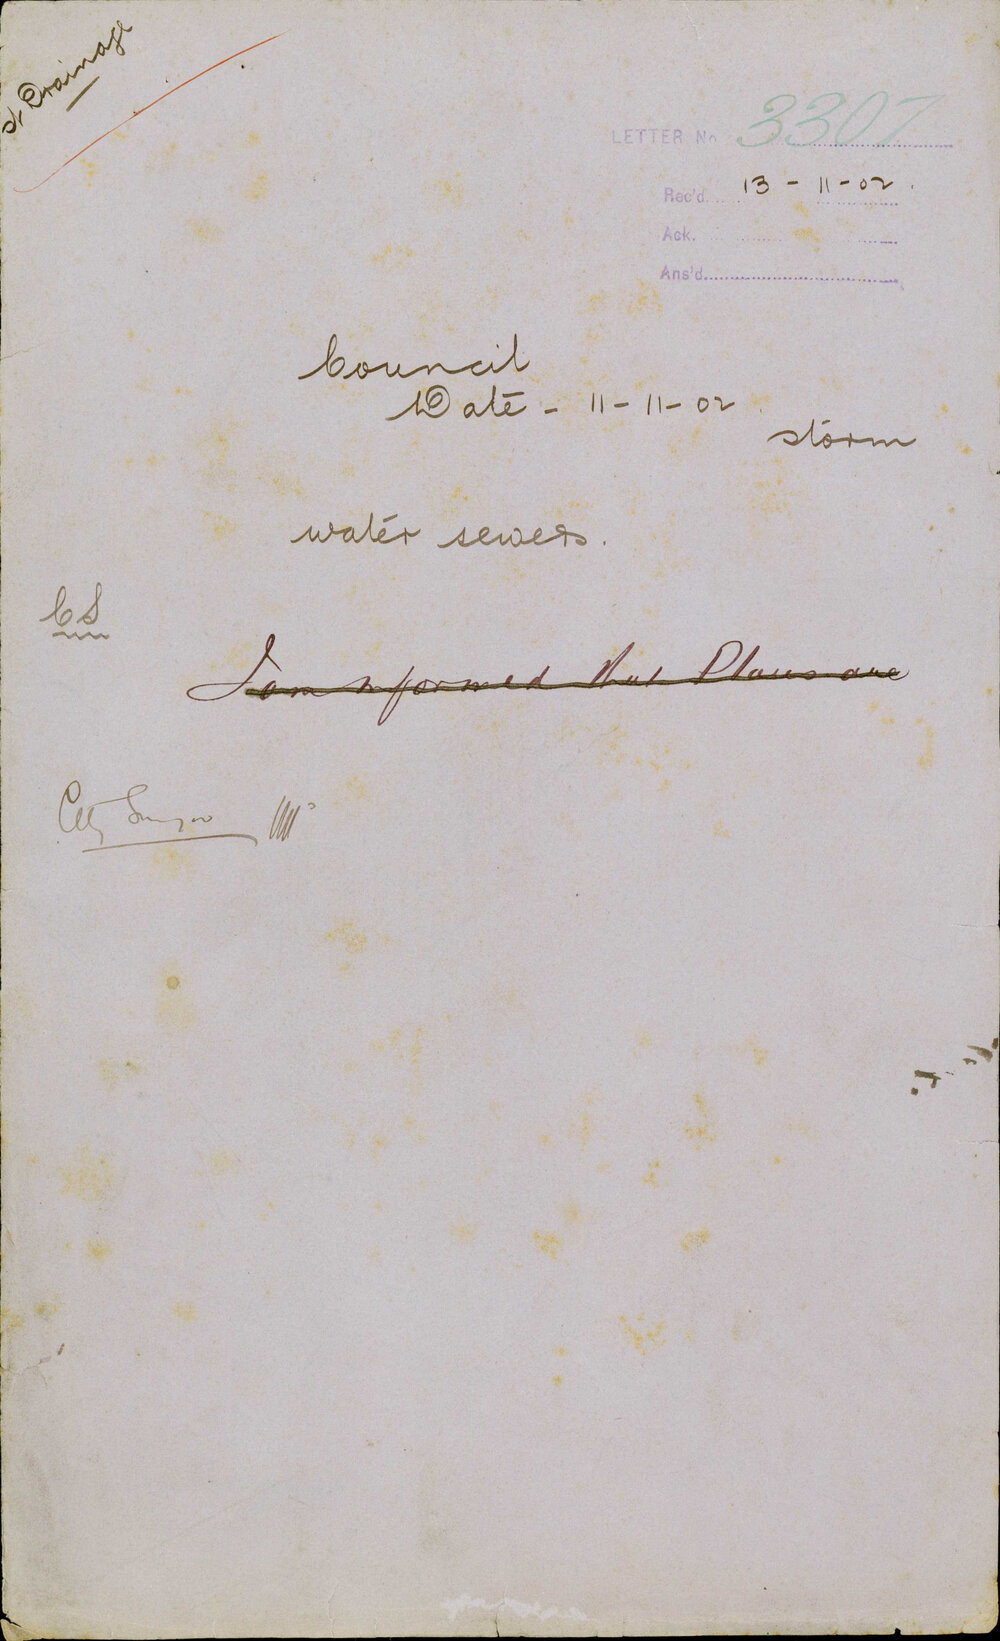 Drainage
LETTER No 3307
Rec'd 13-11-02.
Ack.
Ans'd
Council
Date - 11-11-02.
storm
water sewers.
CS
I am informed that Plans are
City Surveyor